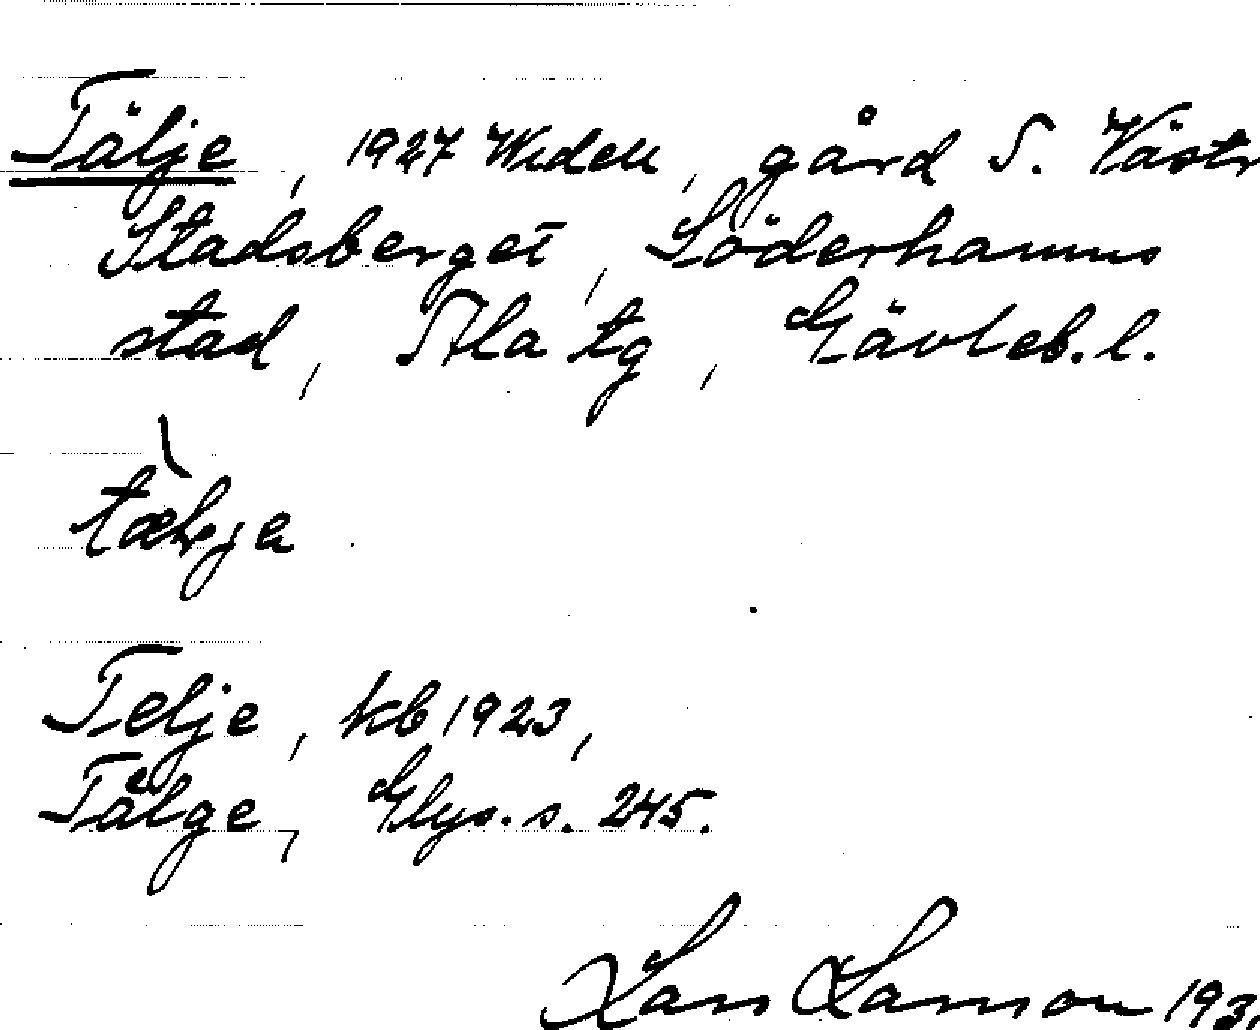 Tälje, 1927 Widell, gård S. Västr
Stadsberget, Söderhamns
stad, Ala tg, Gävleb. l.
Telje, kb 1923,
Tälge, Glys. s. 245.
Lars Larsson 193